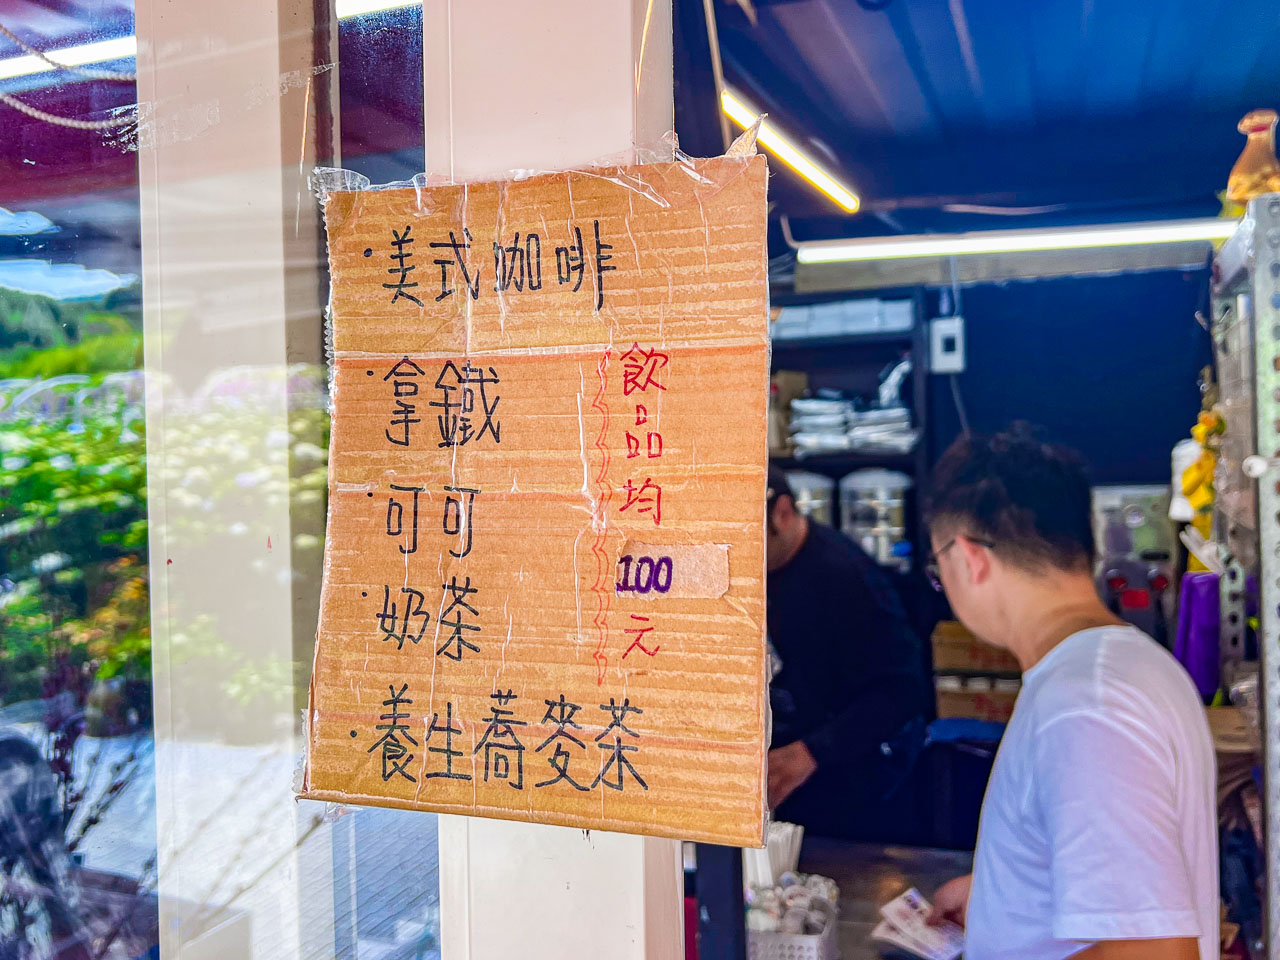 ·美式咖啡
·拿鐵
·可可
·奶茶
·養生蕎麥茶
飲品均100元